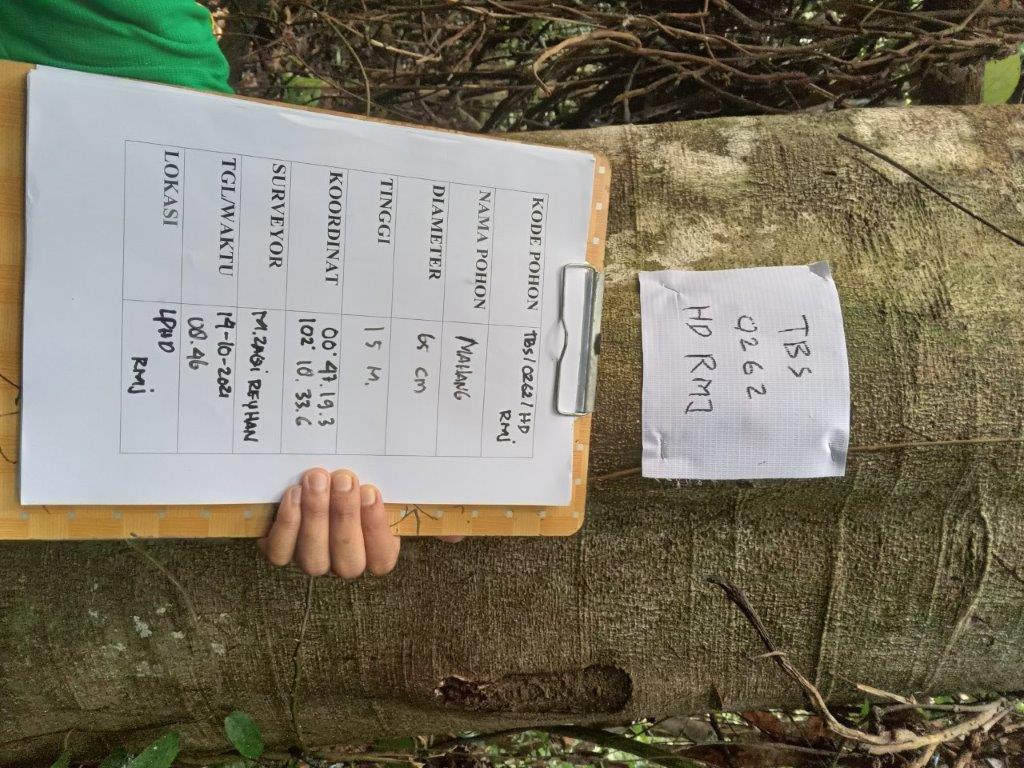 KODE POHON TBS/0262/HD RMJ
NAMA POHON MAHANG
DIAMETER 65 CM
TINGGI 15 M.
KOORDINAT 00°.47.19.3
102° 10'. 33.6
SURVEYOR M.ZAGI REYHAN
TGL/WAKTU 19-10-2021
08.46
LOKASI LPHD
RMJ
TBS
0262
HD RMJ